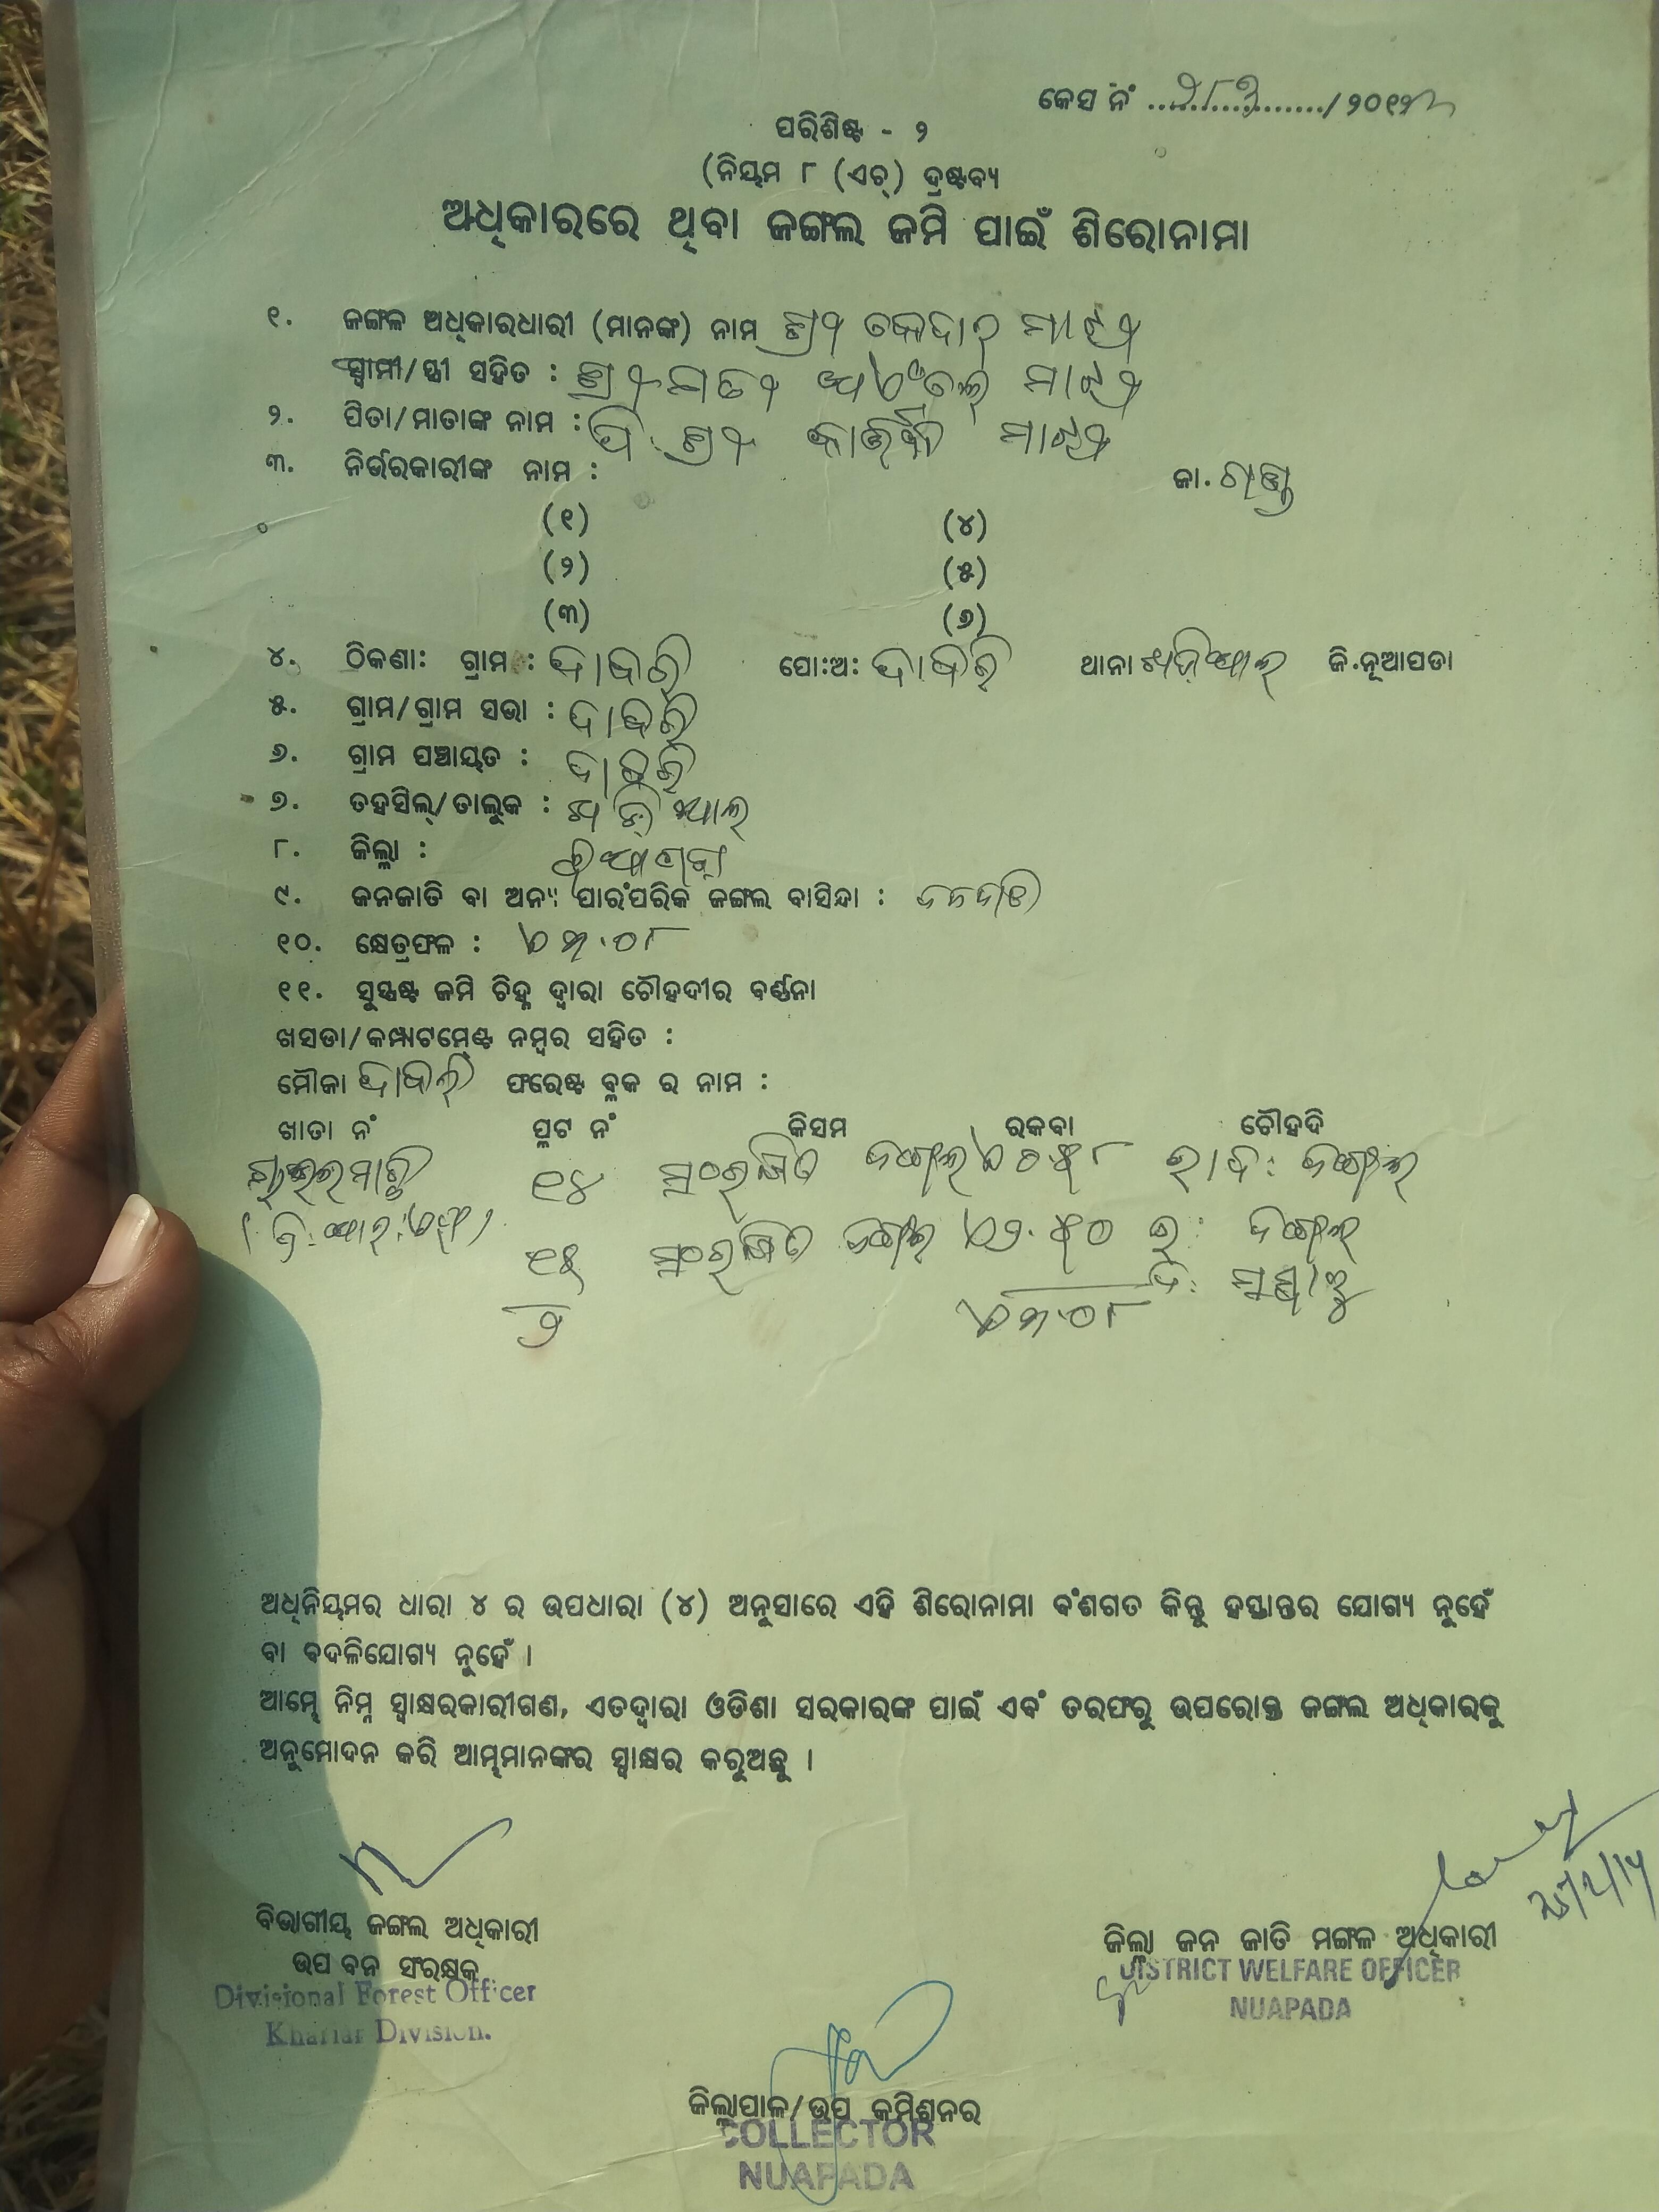 କେସ ନଂ ................../୨୦୧୨
ପରିଶିଷ୍ଟ - ୨
(ନିୟମ ୮ (ଏଚ୍) ଦ୍ରଷ୍ଟବ୍ୟ
ଅଧିକାରରେ ଥିବା ଜଙ୍ଗଲ ଜମି ପାଇଁ ଶିରୋନାମା
୧. ଜଙ୍ଗଳ ଅଧିକାରଧାରୀ (ମାନଙ୍କ) ନାମ ଶ୍ରୀ କେଦାର ମାଝୀ
ସ୍ୱାମୀ/ସ୍ତ୍ରୀ ସହିତ : ଶ୍ରୀମତୀ ମାଝୀ
୨. ପିତା/ମାତାଙ୍କ ନାମ : ପି. ଶ୍ରୀ କାର୍ତ୍ତିକ ମାଝୀ
୩. ନିର୍ଭରକାରୀଙ୍କ ନାମ : ଜା. ଗଣ୍ଡ
(୧) (୪)
(୨) (୫)
(୩) (୬)
୪. ଠିକଣା: ଗ୍ରାମ : ଦାବରି ପୋ:ଅ: ଦାବରି ଥାନା ଖଡ଼ିଆଲ୍ ଜି.ନୂଆପଡା
୫. ଗ୍ରାମ/ଗ୍ରାମ ସଭା : ଦାବରି
୬. ଗ୍ରାମ ପଞ୍ଚାୟତ : ଦାବରି
୭. ତହସିଲ୍/ତାଲୁକ : ଖଡ଼ିଆଲ୍
୮. ଜିଲ୍ଲା : ନୂଆପଡ଼ା
୯. ଜନଜାତି ବା ଅନ୍ୟ ପାରଂପରିକ ଜଙ୍ଗଲ ବାସିନ୍ଦା : ଜନଜାତି
୧୦. କ୍ଷେତ୍ରଫଳ : ୩.୦୮
୧୧. ସୁସ୍ପଷ୍ଟ ଜମି ଚିହ୍ନ ଦ୍ୱାରା ଚୌହଦୀର ବର୍ଣ୍ଣନା
ଖସଡା/କମ୍ପାଟମେଣ୍ଟ ନମ୍ବର ସହିତ :
ମୌଜା ଦାବରି ଫରେଷ୍ଟ ବ୍ଲକ ର ନାମ :
ଖାତା ନଂ ପ୍ଲଟ ନଂ କିସମ ରକବା ଚୌହଦି
୧୪ ସଂରକ୍ଷିତ ଜଙ୍ଗଲ ୦.୫୮ ଜଙ୍ଗଲ
୧୫ ସଂରକ୍ଷିତ ଜଙ୍ଗଲ ୨.୫୦ ଉ: ଜଙ୍ଗଲ
୨ ୩.୦୮ ଦ:
ଅଧିନିୟମର ଧାରା ୪ ର ଉପଧାରା (୪) ଅନୁସାରେ ଏହି ଶିରୋନାମା ବଂଶଗତ କିନ୍ତୁ ହସ୍ତାନ୍ତର ଯୋଗ୍ୟ ନୁହେଁ
ବା ବଦଳିଯୋଗ୍ୟ ନୁହେଁ ।
ଆମ୍ଭେ ନିମ୍ନ ସ୍ୱାକ୍ଷରକାରୀଗଣ, ଏତଦ୍ୱାରା ଓଡିଶା ସରକାରଙ୍କ ପାଇଁ ଏବଂ ତରଫରୁ ଉପରୋକ୍ତ ଜଙ୍ଗଲ ଅଧିକାରକୁ
ଅନୁମୋଦନ କରି ଆମ୍ଭମାନଙ୍କର ସ୍ୱାକ୍ଷର କରୁଅଛୁ ।
ବିଭାଗୀୟ ଜଙ୍ଗଲ ଅଧିକାରୀ
ଉପ ବନ ସଂରକ୍ଷକ
Divisional Forest Officer
Khariar Division.
ଜିଲ୍ଲା ଜନ ଜାତି ମଙ୍ଗଳ ଅଧିକାରୀ
DISTRICT WELFARE OFFICER
NUAPADA
ଜିଲ୍ଲାପାଳ/ଉପ କମିଶନର
COLLECTOR
NUAPADA